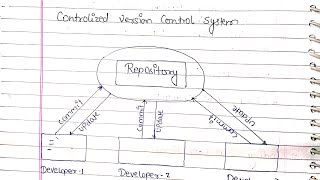 Controlized version Control system
Repository
commit
update
commit
update
update
commit
Developer-1
Developer-2